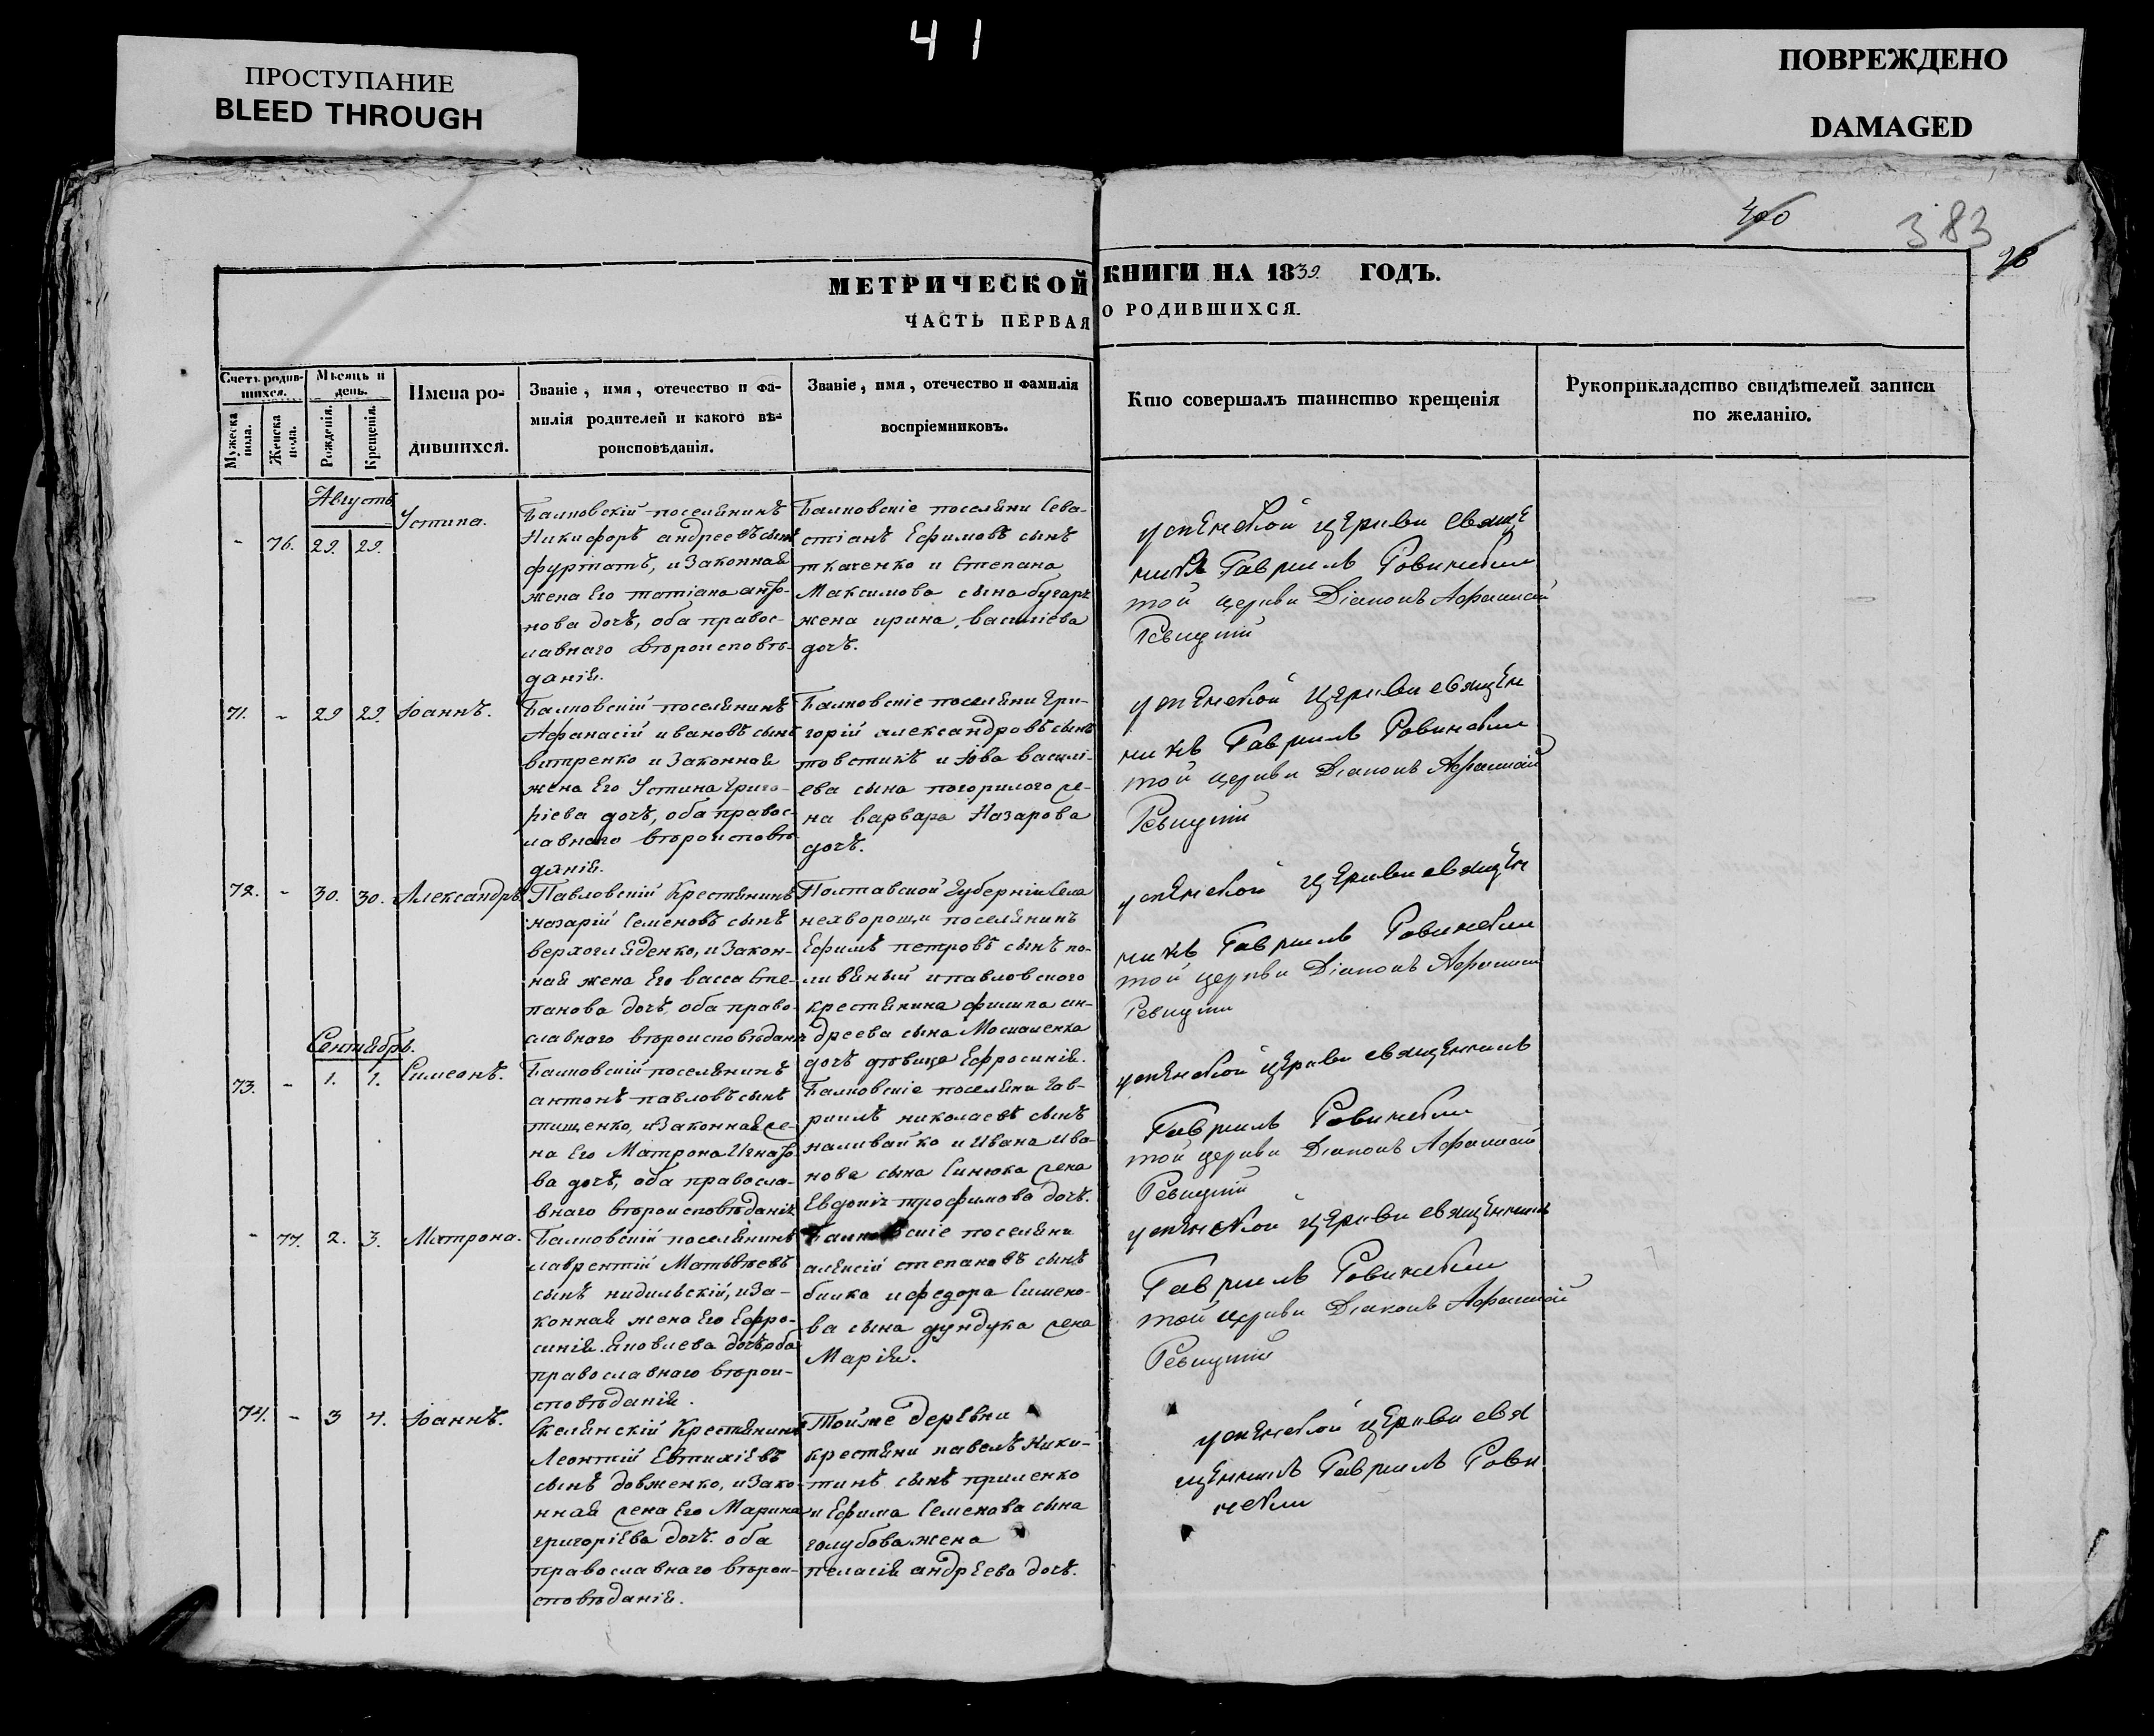 41
ПРОСТУПАНИЕ
BLEED THROUGH
ПОВРЕЖДЕНО
DAMAGED
400
383
МЕТРИЧЕСКОЙ КНИГИ НА 1839. ГОДЪ.
ЧАСТЬ ПЕРВАЯ О РОДИВШИХСЯ.
Счетъ родив-
шихся.
Мужеска
пола.
Женска
пола.
Мѣсяць и
день.
Рожденія.
Крещенія.
Имена ро-
дившихся.
Званіе, имя, отечество и фа-
милія родителей и какого вѣ-
роисповѣданія.
Званіе, имя, отечество и фамилія
воспріемниковъ.
Кто совершалъ таинство крещенія
Рукоприкладство свидѣтелей записи
по желанію.
Августъ
- 76. 29. 29.
Устина.
поселянинъ
Никифоръ андреевъ сынъ
фуртатъ, и законная
жена Его татіана
нова дочъ, оба правос-
лавнаго вѣроисповѣ-
данія.
поселяни Сева-
стіанъ Ефимовъ сынъ
ткаченко и Степана
Максимова сына
жена ирина, василіева
дочъ.
успенской церкви свяще
никъ Гавриилъ
той церкви Діаконъ Афанасій
71. - 29 29.
Іоаннъ.
поселянинъ
Афанасій ивановъ сынъ
витренко и законная
жена Его Устина Григо-
ріева дочъ, оба правос-
лавного вѣроисповѣ-
данія.
поселяни Гри-
горій александровъ сынъ
товстикъ и іова василі-
ева сына погорилого же-
на варвара Назарова
дочъ.
успенской церкви священ
никъ Гавриилъ
той церкви Діаконъ Афанасій
72. - 30. 30.
Александръ
Павловскій Крестянинъ
назарій Семеновъ сынъ
верхогляденко, и закон-
ная жена Его васса Сте-
панова дочъ, оба право-
славнаго вѣроисповѣдан
Полтавской Губерніи Села
нехворощи поселянинъ
Ефимъ петровъ сынъ по-
ливяный и павловского
крестянина филипа ан-
дреева сына
дочъ дѣвица Ефросинія.
успенской церкви священ
никъ Гавриилъ
той церкви Діаконъ
Сентябрь.
73. - 1. 1.
Симеонъ.
поселянинъ
антонъ павловъ сынъ
тищенко, и законная же-
на Его Матрона
ва дочъ, оба правосла-
внаго вѣроисповѣданія
поселяни Гав-
риилъ николаевъ сынъ
наливайко и Ивана ива-
нова сына Синюка жена
трофимова дочъ.
успенской церкви священникъ
Гавриилъ
той церкви Діаконъ Афанасій
- 77. 2. 3.
Матрона.
поселянинъ
лаврентій Матвѣевъ
сынъ нидильскій, и за-
конная жена Его Ефро-
синія Яковлева дочъ оба
православнаго вѣрои-
сповѣданія.
поселяни
алексій степановъ сынъ
билка и федора Симено-
ва сына дундука жена
Марія.
успенской церкви священникъ
Гавриилъ
той церкви Діаконъ Афанасій
74. - 3 4.
Іоаннъ.
Крестянинъ
Леонтій Евтихіевъ
сынъ довженко, и зако-
нная жена Его Марина
григоріева дочъ. оба
православнаго вѣрои-
сповѣданія.
Тойже деревни
крестяни павелъ Ники-
тинъ сынъ
и Ефима Семенова сына
голубова жена
пелагія андреева дочъ.
успенской церкви свя
щенникъ Гавриилъ